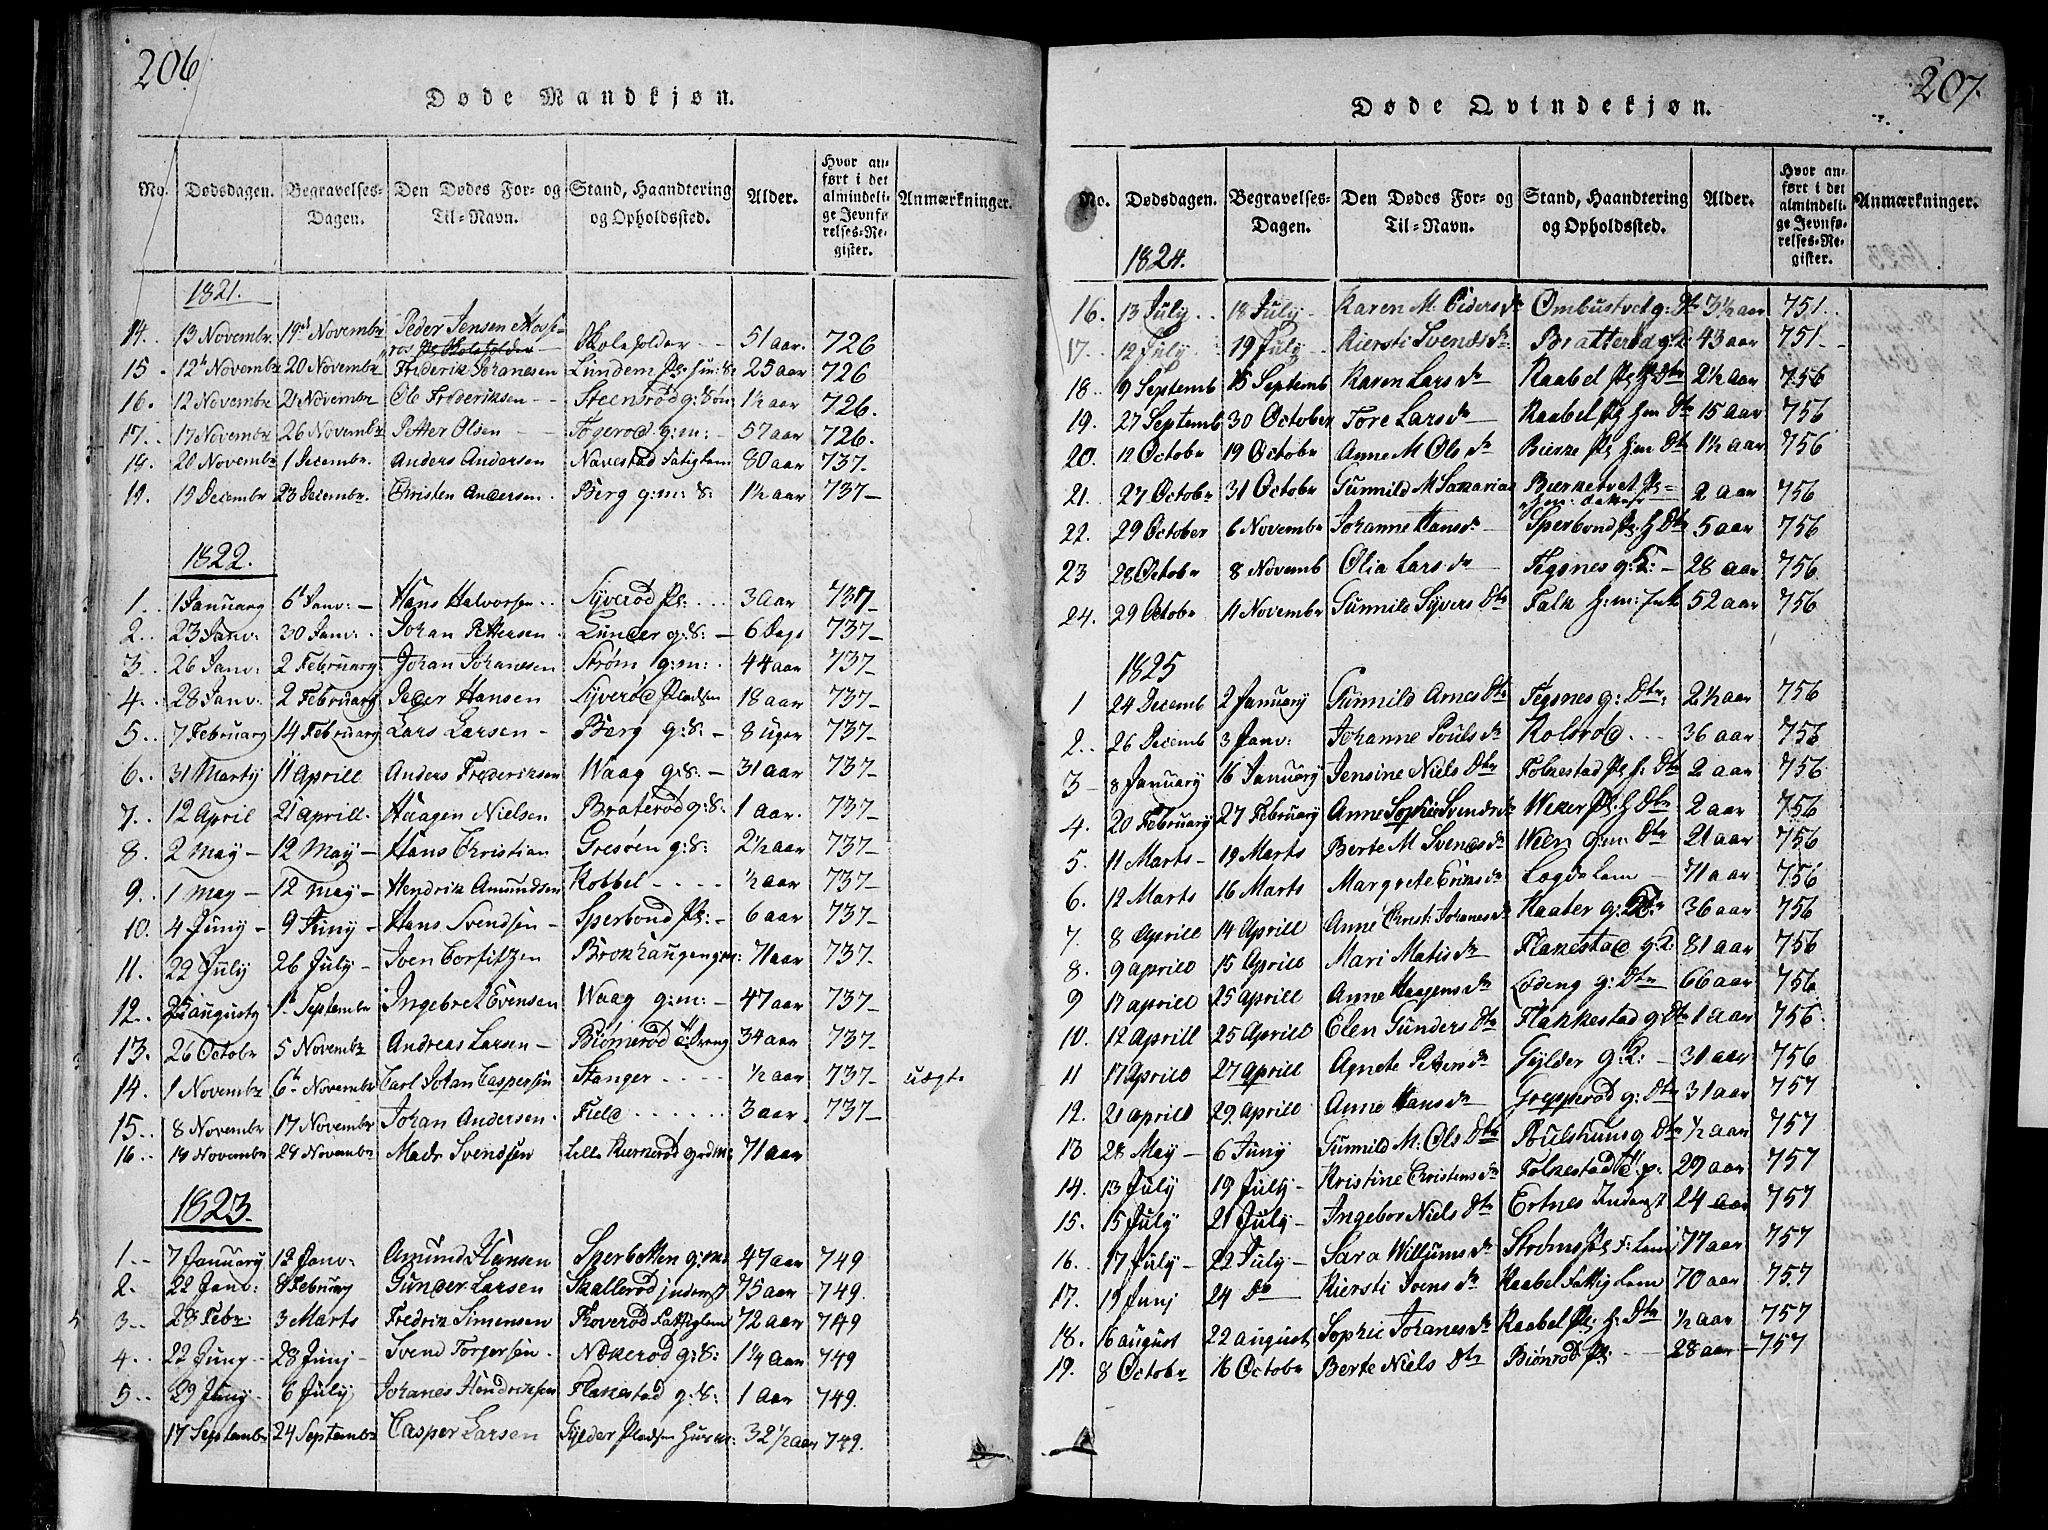 206.
Døde Mandkjøn.
No. Dødsdagen. Begravelses-Dagen. Den Dødes For- og Til-Navn. Stand, Haandtering og Opholdssted. Alder. Hvor anført i det almindelige Jevnførelses-Register. Anmærkninger.
1821.
14. 13 Novembr. 19d Novembr Peder Jensen Skoleholder 51 aar. 726
15. 12t Novembr 20 Novembr Frederik Johanesen Lundem Pl: 25 aar 726
16. 12 Novembr Novembr Ole Frederiksen Steensrød g: Søn 1½ aar 726.
17. 17 Novembr 26 Novembr Petter Olsen Togerød g:m: 57 aar 726.
18. 20 Novembr 1 Decembr. Anders Andersen Navestad Fatiglem 80 aar 737.
19. 19 Decembr 23 Decembr. Christen Andersen Berg g:m: S: 1½ aar 737
1822.
1. 1 January 6t Janv: Hans Halvorsen Syverød Pl: 3 Aar 737
2. 23 Janv: 30 Janv: Johan Pettersen Lunder g:S: 6 Dage 737
3. 26 Janv: 2 February Johan Johanesen Strøm g:m: 44 aar 737
4. 28 Janv: 2 February Peder Hansen Syverød Pladsen 18 aar 737
5. 7 February 14 February Lars Larsen Berg g:S: 8 Uger 737
6. 31 Marty 11 Aprill Anders Frederiksen Waag g:S: 31 aar 737
7. 12 April 21 Aprill. Haagen Nielsen Braterød g:S: 1 aar. 737
8. 2 May 12 May Hans Christian Gresøen g:S: 2½ aar 737
9. 1 May 12 May Hendrik Amundsen Kobbel ½ aar 737
10. 4 Juny 9 Juny Hans Svendsen Sperbond Pl: 6 aar 737
11. 22 July 26 July Sven Corfitzen Brokhaugen g:m: 71 aar 737
12. 25 augusty 1t Septembr Ingebret Evensen Waag g:m: 47 aar 737
13. 26 Octobr 5 Novembr Andreas Larsen Biørnerød Dreng 34 aar 737
14. 1 Novembr 6t Novembr Carl Johan Caspersen Stanger ½ aar 737 uægt
15. 8 Novembr 17 Novembr Johan Andersen Field 3 aar 737
16. 19 Novembr 29 Novembr Svendsen Lille 71 aar
1823.
1. 7 January 12 Janv: Amund Hansen Sperbotten g:m: 47 aar 749
2. 22 Janv: 8 February Gunder Larsen Skallerød inderst 75 aar 749.
3. 28 Febr: 3 Marts Fredrik Simensen Roverød Fattiglem 72 aar 749
4. 22 Juny 28 Junj Svend Torgersen Nøkerød g:S: 1¼ Aar 749
5. 29 Juny 6 July Johanes Hendriksen Flakestad g:S: 1 Aar 749.
17 Septembr 24 Septembr Casper Larsen Gylder Pladsen 32 1/2 aar 749.
207.
Døde Qvindekjøn.
No. Dødsdagen. Begravelses-Dagen. Den Dødes For- og Til-Navn. Stand, Haandtering og Opholdssted. Alder. Hvor anført i det almindelige Jevnførelses-Register. Anmærkninger.
1824.
16. 13 July 18 July Karen M. Peders Dr Ombustvet g: Dr 3½ aar 751.
17. 12 July 19 July Kiersti Svends Dr Bratterød g: 43 aar 751
18. 9 Septemb 15 Septemb Karen Lars Dr Kaabel Pl: H Dtr 2½ Aar 756
19. 27 Septemb 30 October Tore Lars Dr Kaabel Pl: Hm Dtr 15 aar 756
20. 12 Octobr 19 Octobr Anne M Ols Dr Bierke Pl: Hm Dtr 1½ Aar 756
21. 27 Octobr 31 Octobr Gunnild M Sakarias Bierketvet Pl: 2 aar 756
22. 29 October 6 Novembr Johanne Hans Dr Sperbond Pl: H Dtr 5 aar 756
23 28 Octobr 8 Novemb Olia Lars Dr Tegsnes g: 28 aar 756
24. 29 Octobr 11 Novembr Gunnild Syvers Dtr Falk H:m: Enke 52 aar 756
1825
1 24 Decemb 2 January Gunnild Arnes Dtr Tegsnes g: Dtr: 2½ aar 756
2. 26 Decemb 3 Janv: Johanne Pouls Dr Kolsrød 36 aar 756
3 8 January 16 January Jensine Niels Dtr Folkestad Pl: H: Dtr 2 aar 756
4. 20 February 27 February Anne Sophie Svends Dr Weker Pl: H Dtr 2 aar 756
5. 11 Marts 19 Marts Berte M Svends Dr Wien g:m: Dtr 21 aar 756
6. 12 Marts 16 Marts Margrete Eriks Dr Lægdslem 71 aar 756
7. 8 Aprill 14 Aprill Anne Christi Johanes Dr Kaater g: 36 aar 756
8. 9 aprill 15 Aprill Mari Matis Dr Flakestad g: 81 aar 756
9 17 aprill 25 Aprill Anne Haagens Dr Lødeng g: Dtr 66 aar 756
10. 12 Aprill 25 Aprill Elen Gunders Dtr Flakkestad g: Dtr 1 aar 756
11 17 Aprill 27 Aprill Agnete Petters Dr Gylder g: 31 aar 756
12. 21 aprill 29. Aprill Anne Hans Dr Grepperød g: Dtr 31 aar 757
13 28 May 6 Juny Gunnild M: Ols Dtr Poulshuus g Dtr ½ aar 757
14. 13 July 19 July Kristine Christens Dr Folkestad 29 aar 757
15. 15 July 21 July Ingebor Niels Dtr Ertnes Inderst 24 aar 757
16. 17 July 22 July Sara Willums Dr Strøms Pl: F: Lem 77 aar 757
17. 19 Junj 24 Do Kiersti Svens Dr Kaabel Fattig Lem 70 aar 757
18. 16 august 22 august, Sophie Johanes Dr Kaabel Pl: H: Dtr ½ aar 757
19. 8 October 16 Octobr Berte Niels Dtr Biønrød Pl: 28 aar 757